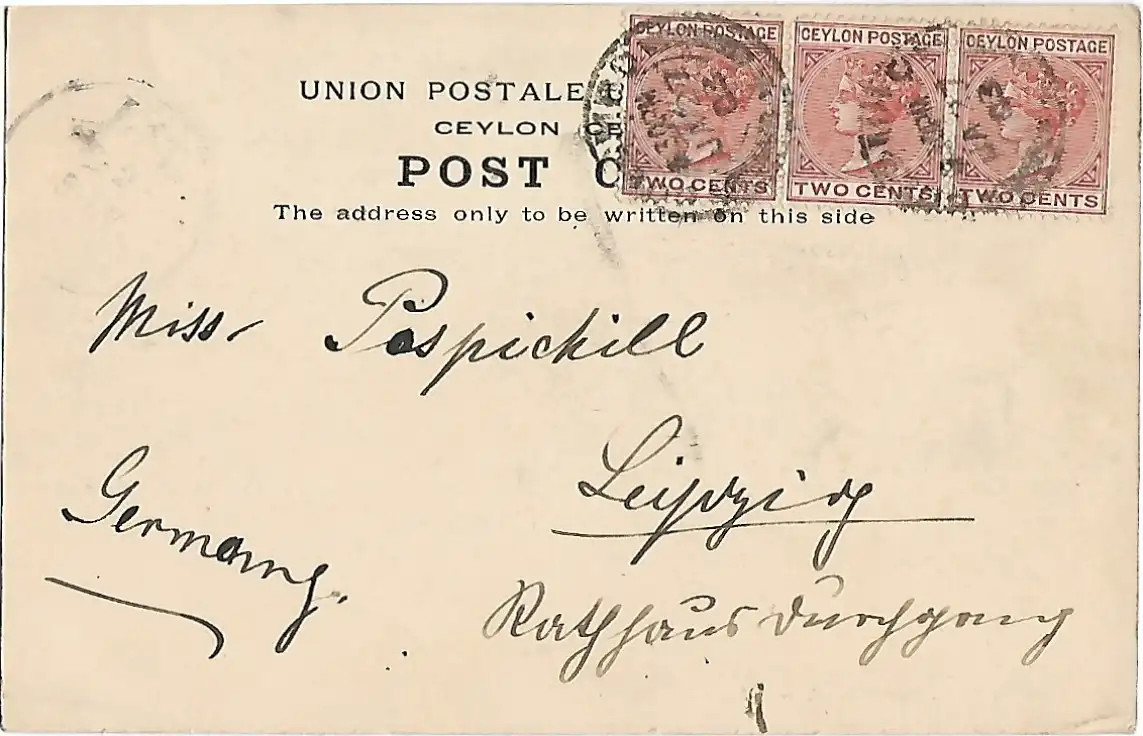 CEYLON POSTAGE CEYLON POSTAGE CEYLON POSTAGE
TWO CENTS TWO CENTS TWO CENTS
UNION POSTALE
CEYLON
POST
The address only to be written on this side
Miss Pospickill
Leipzig
Germany.
Rathhaus Durchgang